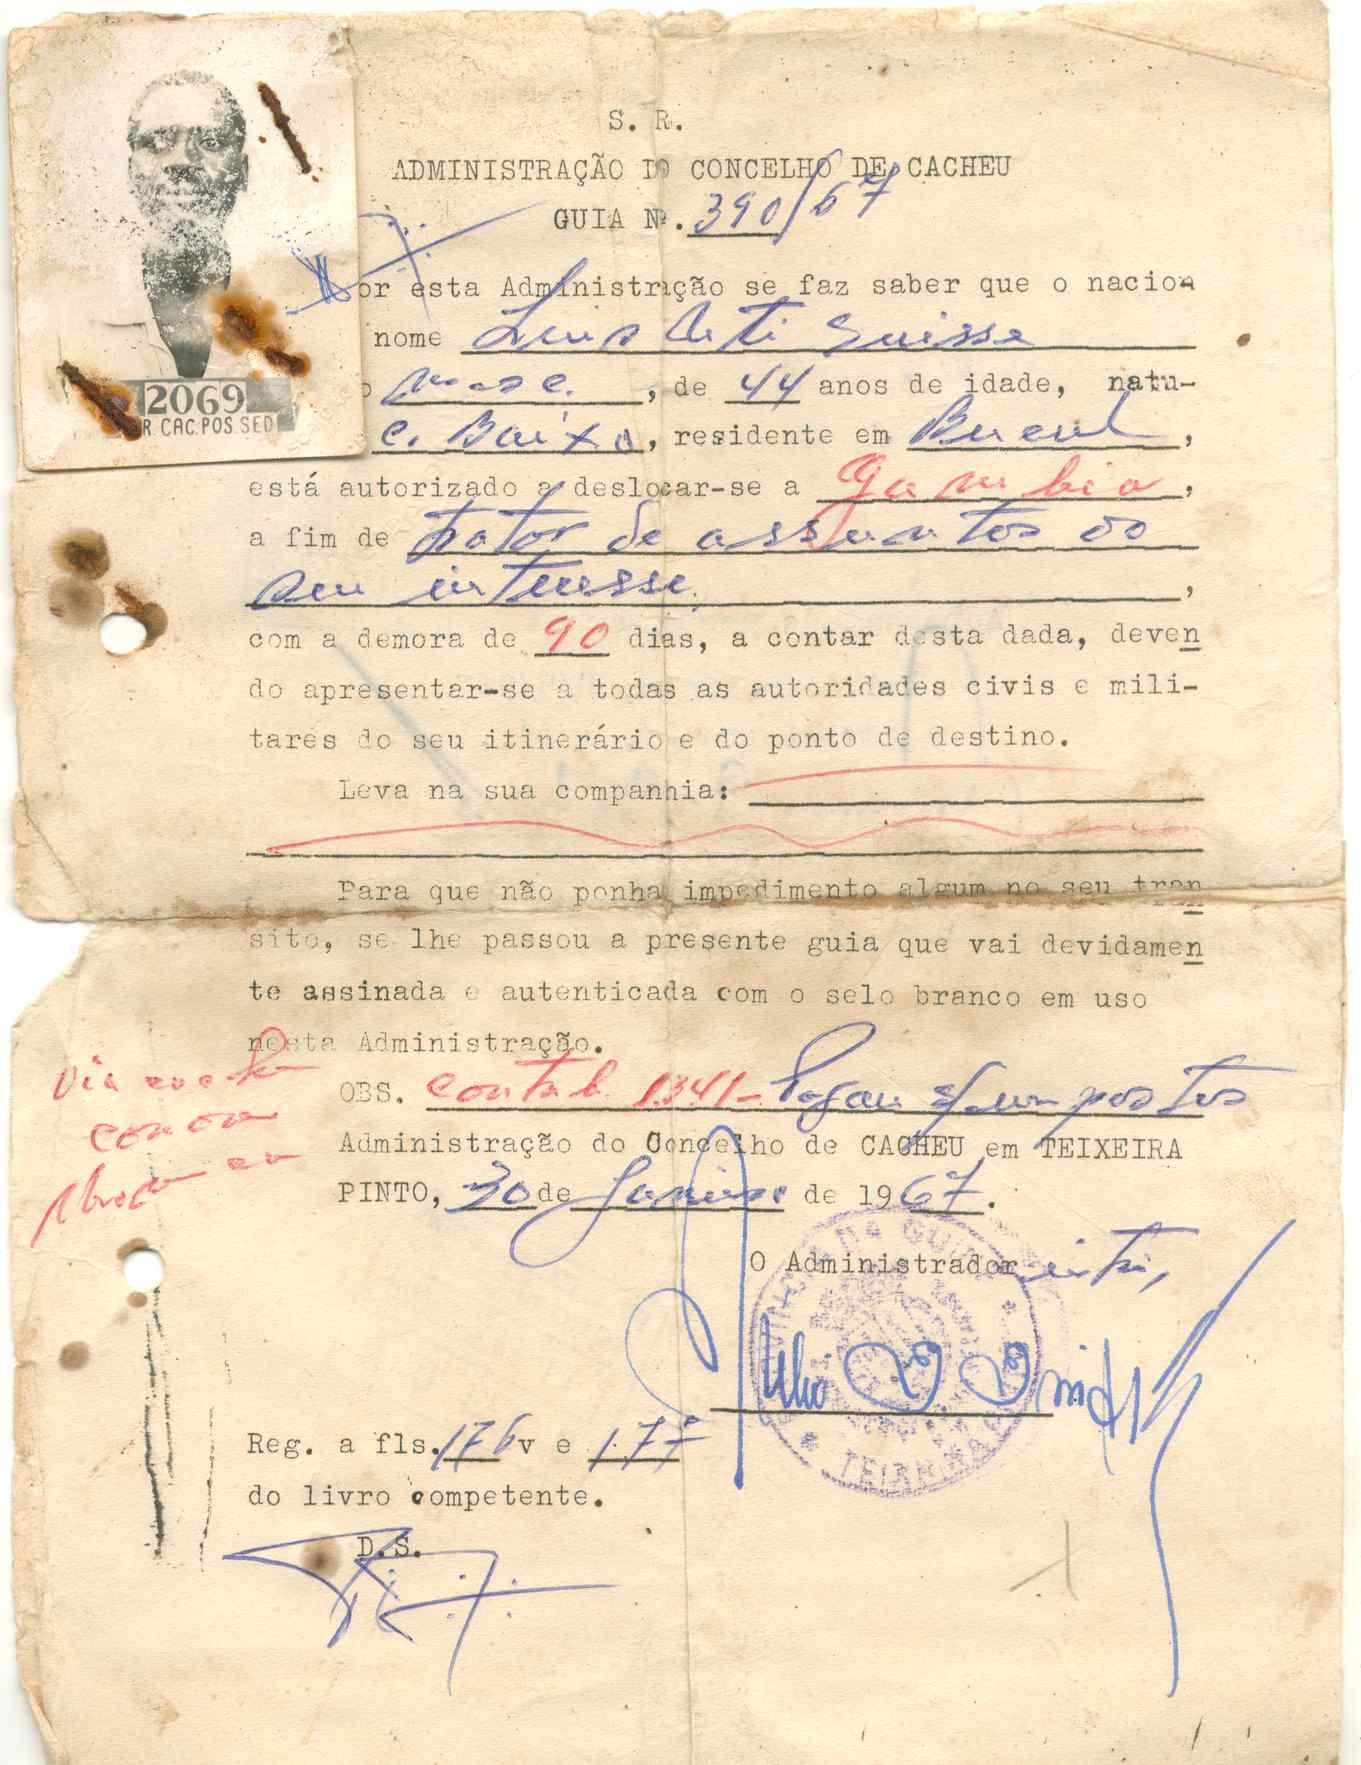 S. R.
ADMINISTRAÇÃO DO CONCELHO DE CACHEU
GUIA Nº. 390/67
Por esta Administração se faz saber que o nacion
nome Luis
masc. , de 44 anos de idade, natu-
C. Baixo, residente em
está autorizado a deslocar-se a Gambia,
a fim de tratar de assuntos do
seu interesse.,
com a demora de 90 dias, a contar desta dada, deven
do apresentar-se a todas as autoridades civis e mili-
tares do seu itinerário e do ponto de destino.
Leva na sua companhia:
Para que não ponha impedimento algum no seu tran
sito, se lhe passou a presente guia que vai devidamen
te assinada e autenticada com o selo branco em uso
nesta Administração.
OBS. Contab. 1341- Pagou impostos
Administração do Concelho de CACHEU em TEIXEIRA
PINTO, 30 de de 1967.
O Administrador
Reg. a fls. 176 v e 177
do livro competente.
D.S.
2069
R.CAC.POS.SED
TEIXEIRA